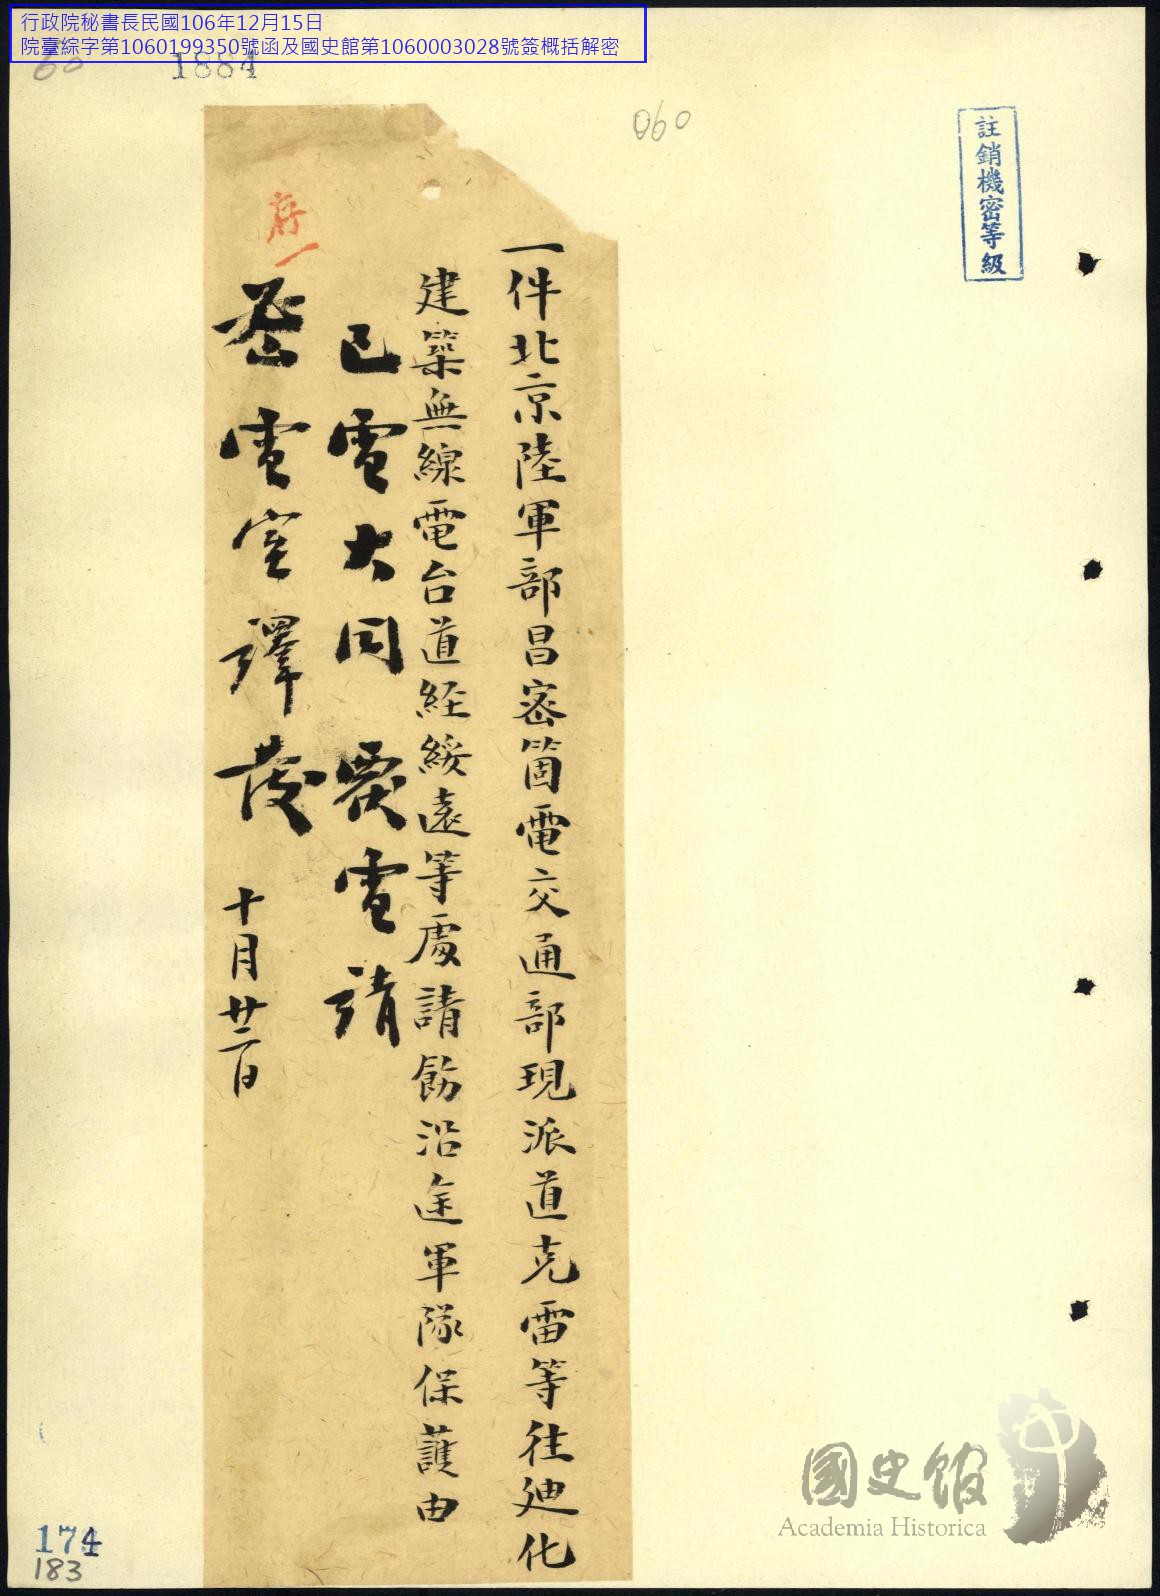 行政院秘書長民國106年12月15日
院臺綜字第1060199350號函及國史館第1060003028號簽概括解密
60
1884
060
註銷機密等級
一件北京陸軍部昌密箇電交通部現派道克雷等往廸化
建築無線電台道經綏遠等處請飭沿途軍隊保護由
已電大同 電請
存
電室譯發 十月廿二日
國史館
Academia Historica
174
183